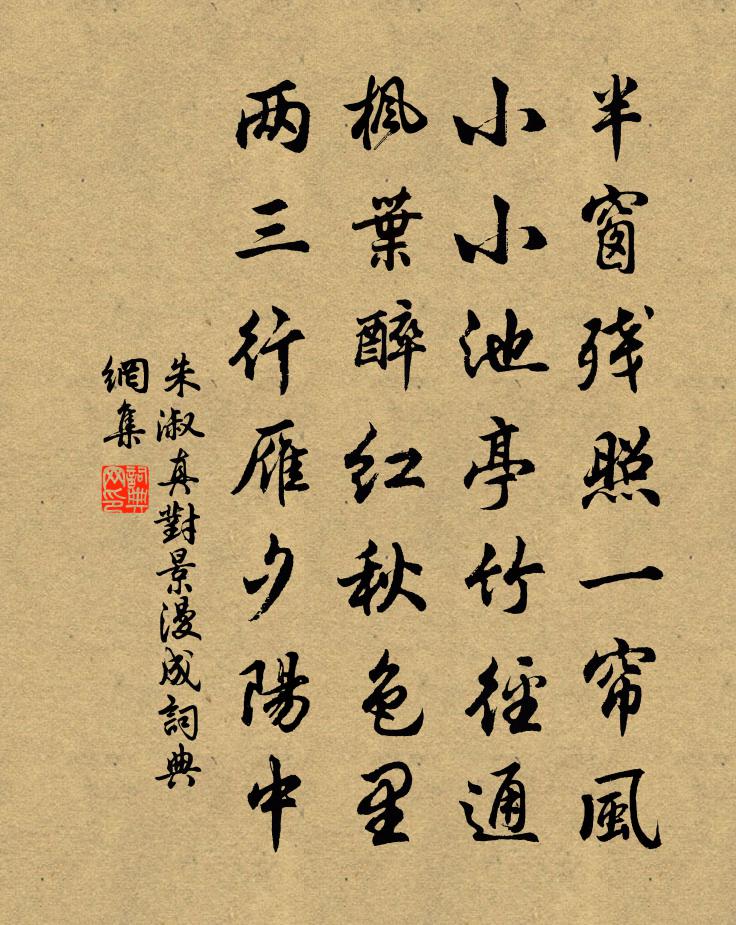 半窗残照一帘風
小小池亭竹徑通
楓葉醉紅秋色里
两三行雁夕陽中
朱淑真對景漫成詞典
網集
詞典
网印